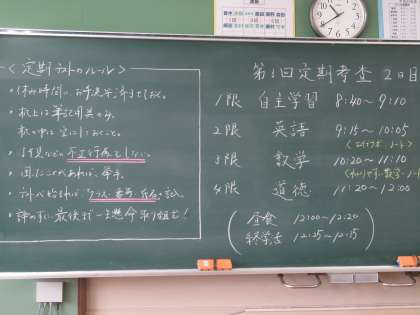 <定期テストのルール>
・休み時間に、お手洗等済ませておく。
・机上は筆記用具のみ。
机の中は空にしておくこと。
不正行為をしない。
・困ったことがあれば、挙手。
・テスト始まれば、クラス、番号、氏名を記入
・諦めずに最後まで一生懸命取り組む!
第1回定期考査 2日目
1限 自主学習 8:40~9:10
2限 英語 9:15~10:05
3限 数学 10:20~11:10
4限 道徳 11:20~12:00
昼食 12:00~12:20
終学活 12:25~12:35